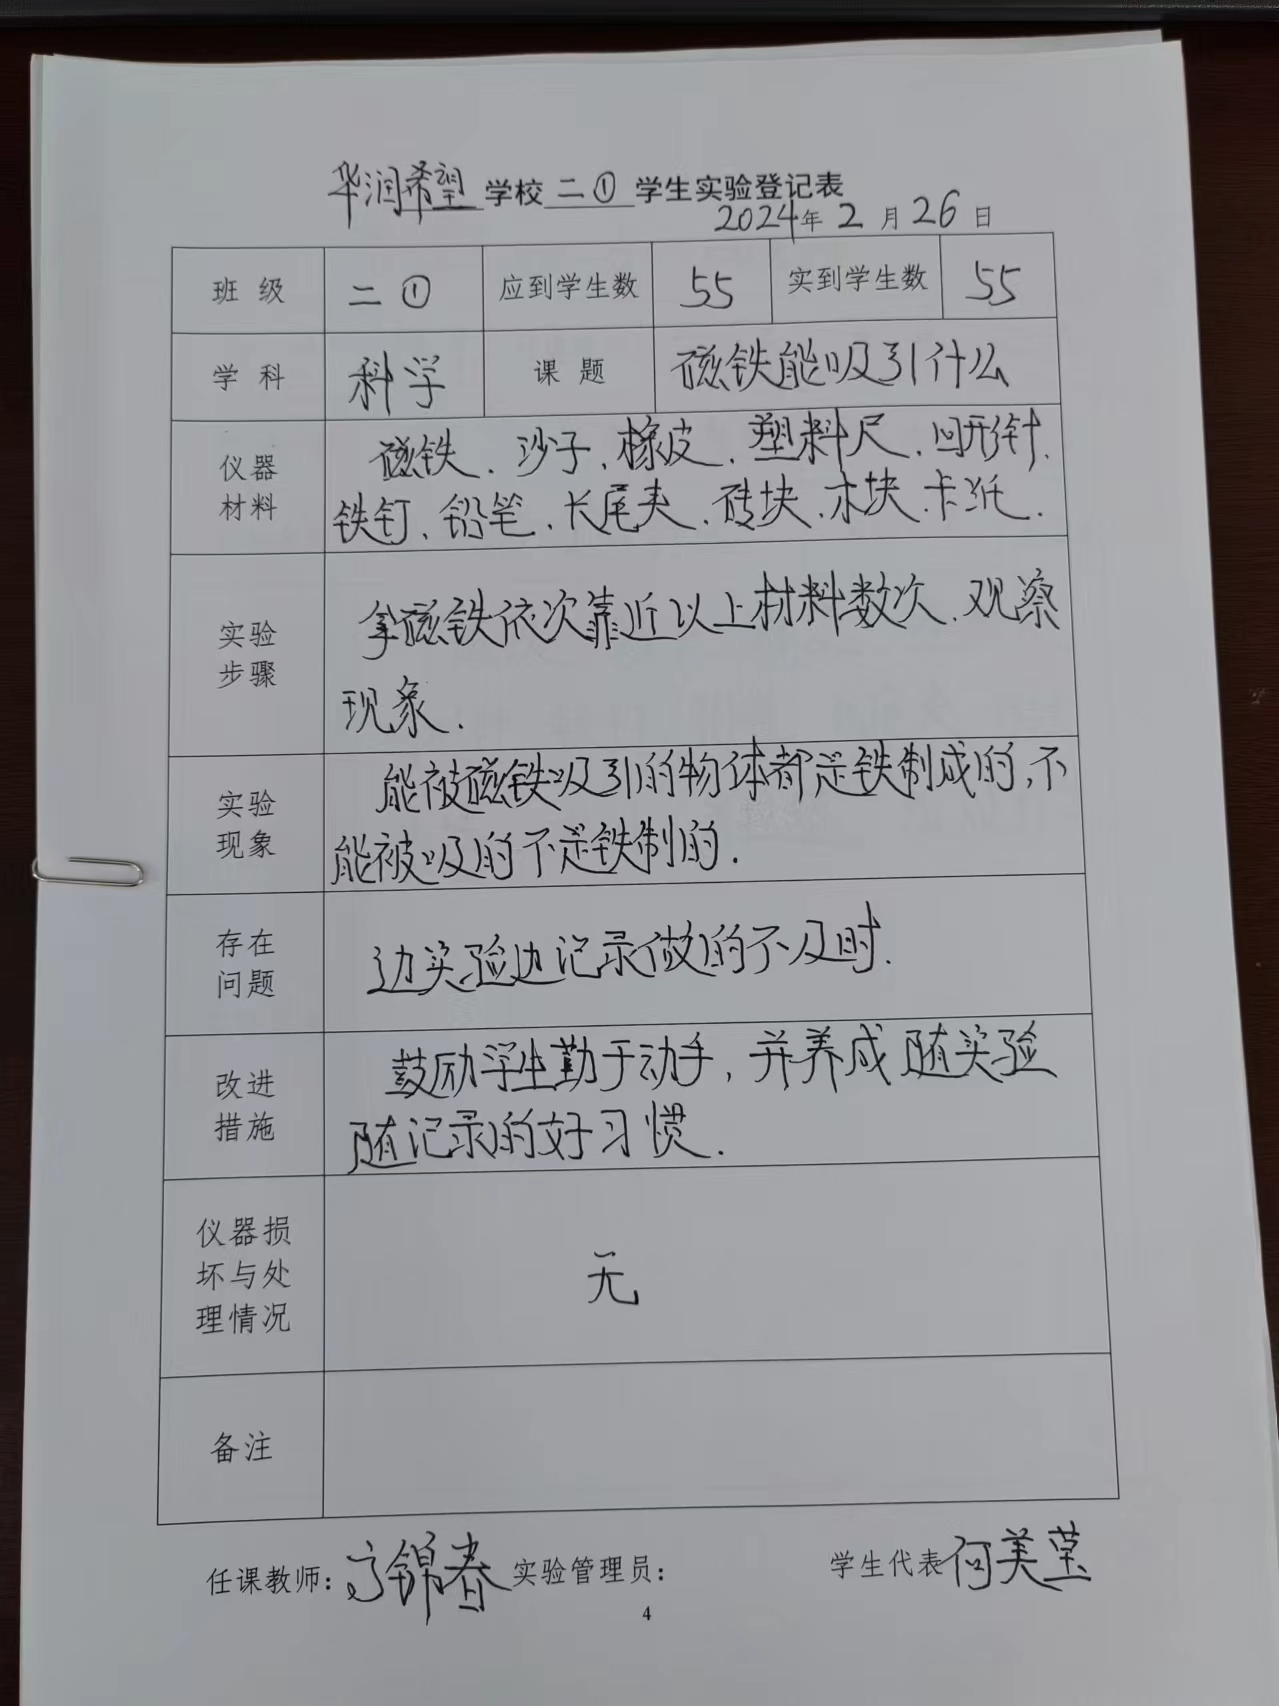 华润希望学校二①学生实验登记表
2024年2月26日
班级 二① 应到学生数 55 实到学生数 55
学科 科学 课题 磁铁能吸引什么
仪器材料 磁铁、沙子、橡皮、塑料尺、回形针、
铁钉、铅笔、长尾夹、砖块、木块、卡纸.
实验步骤 拿磁铁依次靠近以上材料数次、观察
现象.
实验现象 能被磁铁吸引的物体都是铁制成的,不
能被吸的不是铁制的.
存在问题 边实验边记录做的不及时.
改进措施 鼓励学生勤于动手,并养成随实验
随记录的好习惯.
仪器损坏与处理情况 无
备注
任课教师: 锦春 实验管理员: 学生代表 何美莹
4